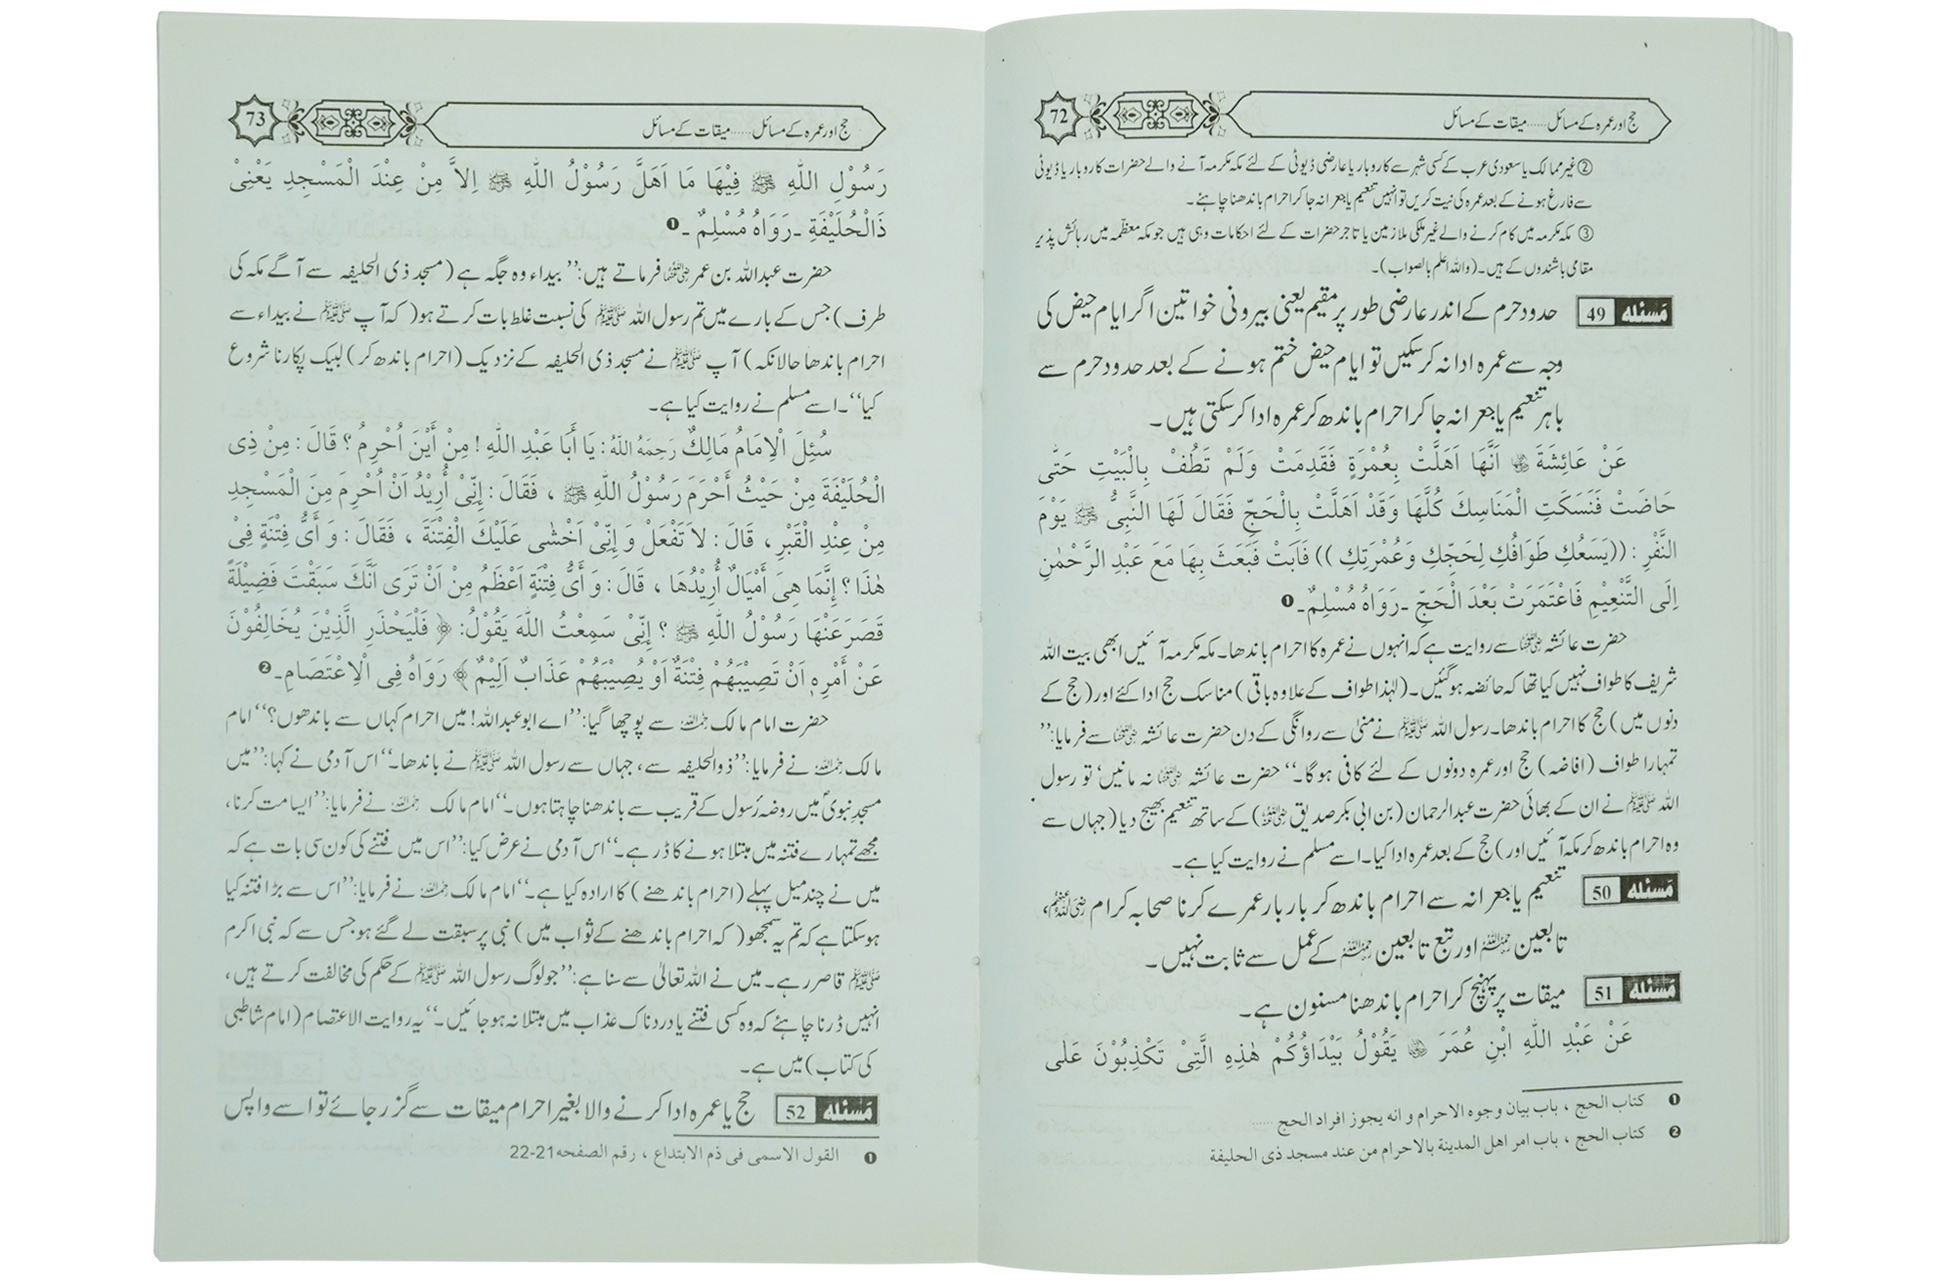 72
حج اور عمرہ کے مسائل ...... میقات کے مسائل
② غیر ممالک یا سعودی عرب کے کسی شہر سے کاروبار یا عارضی ڈیوٹی کے لئے مکہ مکرمہ آنے والے حضرات کاروبار یا ڈیوٹی
سے فارغ ہونے کے بعد عمرہ کی نیت کریں تو انہیں تنعیم یا جعرانہ جا کر احرام باندھنا چاہئے۔
③ مکہ مکرمہ میں کام کرنے والے غیر ملکی ملازمین یا تاجر حضرات کے لئے احکامات وہی ہیں جو مکہ معظمہ میں رہائش پذیر
مقامی باشندوں کے ہیں۔ (واللہ اعلم بالصواب)۔
مَسئلہ 49 حدود حرم کے اندر عارضی طور پر مقیم یعنی بیرونی خواتین اگر ایام حیض کی
وجہ سے عمرہ ادا نہ کرسکیں تو ایام حیض ختم ہونے کے بعد حدود حرم سے
باہر تنعیم یا جعرانہ جا کر احرام باندھ کر عمرہ ادا کرسکتی ہیں۔
عَنْ عَائِشَةَ رضی اللہ عنہا اَنَّهَا اَهَلَّتْ بِعُمْرَةٍ فَقَدِمَتْ وَلَمْ تَطُفْ بِالْبَيْتِ حَتّٰى
حَاضَتْ فَنَسَكَتِ الْمَنَاسِكَ كُلَّهَا وَقَدْ اَهَلَّتْ بِالْحَجِّ فَقَالَ لَهَا النَّبِىُّ ﷺ يَوْمَ
النَّفْرِ : ((يَسَعُكِ طَوَافُكِ لِحَجِّكِ وَعُمْرَتِكِ )) فَاَبَتْ فَبَعَثَ بِهَا مَعَ عَبْدِ الرَّحْمٰنِ
اِلَى التَّنْعِيْمِ فَاعْتَمَرَتْ بَعْدَ الْحَجِّ ۔ رَوَاهُ مُسْلِمٌ۔ ❶
حضرت عائشہ رضی اللہ عنہا سے روایت ہے کہ انہوں نے عمرہ کا احرام باندھا۔ مکہ مکرمہ آئیں ابھی بیت اللہ
شریف کا طواف نہیں کیا تھا کہ حائضہ ہوگئیں۔ (لہٰذا طواف کے علاوہ باقی) مناسک حج ادا کئے اور (حج کے
دنوں میں) حج کا احرام باندھا۔ رسول اللہ ﷺ نے منیٰ سے روانگی کے دن حضرت عائشہ رضی اللہ عنہا سے فرمایا: ’’
تمہارا طواف (افاضہ) حج اور عمرہ دونوں کے لئے کافی ہوگا۔‘‘ حضرت عائشہ رضی اللہ عنہا نہ مانیں‘ تو رسول
اللہ ﷺ نے ان کے بھائی حضرت عبدالرحمان (بن ابی بکر صدیق رضی اللہ عنہ) کے ساتھ تنعیم بھیج دیا (جہاں سے
وہ احرام باندھ کر مکہ آئیں اور) حج کے بعد عمرہ ادا کیا۔ اسے مسلم نے روایت کیا ہے۔
مَسئلہ 50 تنعیم یا جعرانہ سے احرام باندھ کر بار بار عمرے کرنا صحابہ کرام رضی اللہ عنہم،
تابعین رحمہم اللہ اور تبع تابعین رحمہم اللہ کے عمل سے ثابت نہیں۔
مَسئلہ 51 میقات پر پہنچ کر احرام باندھنا مسنون ہے۔
عَنْ عَبْدِ اللّٰهِ ابْنِ عُمَرَ رضی اللہ عنہ يَقُوْلُ بَيْدَاؤُكُمْ هٰذِهِ الَّتِىْ تَكْذِبُوْنَ عَلٰى
❶ كتاب الحج ، باب بيان وجوه الاحرام و انه يجوز افراد الحج ......
❷ كتاب الحج ، باب امر اهل المدينة بالاحرام من عند مسجد ذى الحليفة
73
حج اور عمرہ کے مسائل ...... میقات کے مسائل
رَسُوْلِ اللّٰهِ ﷺ فِيْهَا مَا اَهَلَّ رَسُوْلُ اللّٰهِ ﷺ اِلاَّ مِنْ عِنْدَ الْمَسْجِدِ يَعْنِىْ
ذَالْحُلَيْفَةِ ۔ رَوَاهُ مُسْلِمٌ ۔ ❶
حضرت عبداللہ بن عمر رضی اللہ عنہما فرماتے ہیں: ’’بیداء وہ جگہ ہے (مسجد ذی الحلیفہ سے آگے مکہ کی
طرف) جس کے بارے میں تم رسول اللہ ﷺ کی نسبت غلط بات کرتے ہو ( کہ آپ ﷺ نے بیداء سے
احرام باندھا حالانکہ) آپ ﷺ نے مسجد ذی الحلیفہ کے نزدیک (احرام باندھ کر) لبیک پکارنا شروع
کیا‘‘۔ اسے مسلم نے روایت کیا ہے۔
سُئِلَ الْاِمَامُ مَالِكٌ رَحِمَهُ اللّٰهُ : يَا أَبَا عَبْدِ اللّٰهِ ! مِنْ أَيْنَ اُحْرِمُ ؟ قَالَ : مِنْ ذِى
الْحُلَيْفَةَ مِنْ حَيْثُ أَحْرَمَ رَسُوْلُ اللّٰهِ ﷺ ، فَقَالَ : إِنِّىْ أُرِيْدُ اَنْ اُحْرِمَ مِنَ الْمَسْجِدِ
مِنْ عِنْدِ الْقَبْرِ ، قَالَ : لاَ تَفْعَلْ وَ إِنِّىْ اَخْشٰى عَلَيْكَ الْفِتْنَةَ ، فَقَالَ : وَ أَىُّ فِتْنَةٍ فِىْ
هٰذَا ؟ إِنَّمَا هِىَ أَمْيَالٌ أُرِيْدُهَا ، قَالَ : وَ أَىُّ فِتْنَةٍ اَعْظَمُ مِنْ اَنْ تَرَى اَنَّكَ سَبَقْتَ فَضِيْلَةً
قَصَرَ عَنْهَا رَسُوْلُ اللّٰهِ ﷺ ؟ إِنِّىْ سَمِعْتُ اللّٰهَ يَقُوْلُ : ﴿ فَلْيَحْذَرِ الَّذِيْنَ يُخَالِفُوْنَ
عَنْ أَمْرِهٖ اَنْ تُصِيْبَهُمْ فِتْنَةٌ اَوْ يُصِيْبَهُمْ عَذَابٌ اَلِيْمٌ ﴾ رَوَاهُ فِى الْاِعْتَصَامِ۔ ❷
حضرت امام مالک رحمہ اللہ سے پوچھا گیا: ’’اے ابوعبداللہ! میں احرام کہاں سے باندھوں؟‘‘ امام
مالک رحمہ اللہ نے فرمایا: ’’ذوالحلیفہ سے، جہاں سے رسول اللہ ﷺ نے باندھا۔‘‘ اس آدمی نے کہا: ’’میں
مسجد نبویؐ میں روضہ رسول کے قریب سے باندھنا چاہتا ہوں۔‘‘ امام مالک رحمہ اللہ نے فرمایا: ’’ایسا مت کرنا،
مجھے تمہارے فتنہ میں مبتلا ہونے کا ڈر ہے۔‘‘ اس آدمی نے عرض کیا: ’’اس میں فتنے کی کون سی بات ہے کہ
میں نے چند میل پہلے (احرام باندھنے) کا ارادہ کیا ہے۔‘‘ امام مالک رحمہ اللہ نے فرمایا: ’’اس سے بڑا فتنہ کیا
ہوسکتا ہے کہ تم یہ سمجھو ( کہ احرام باندھنے کے ثواب میں) نبی پر سبقت لے گئے ہو جس سے کہ نبی اکرم
ﷺ قاصر رہے۔ میں نے اللہ تعالیٰ سے سنا ہے: ’’جو لوگ رسول اللہ ﷺ کے حکم کی مخالفت کرتے ہیں،
انہیں ڈرنا چاہئے کہ وہ کسی فتنے یا دردناک عذاب میں مبتلا نہ ہو جائیں۔‘‘ یہ روایت الاعتصام (امام شاطبی
کی کتاب) میں ہے۔
مَسئلہ 52 حج یا عمرہ ادا کرنے والا بغیر احرام میقات سے گزر جائے تو اسے واپس
❶ القول الاسمى فى ذم الابتداع ، رقم الصفحه 21-22